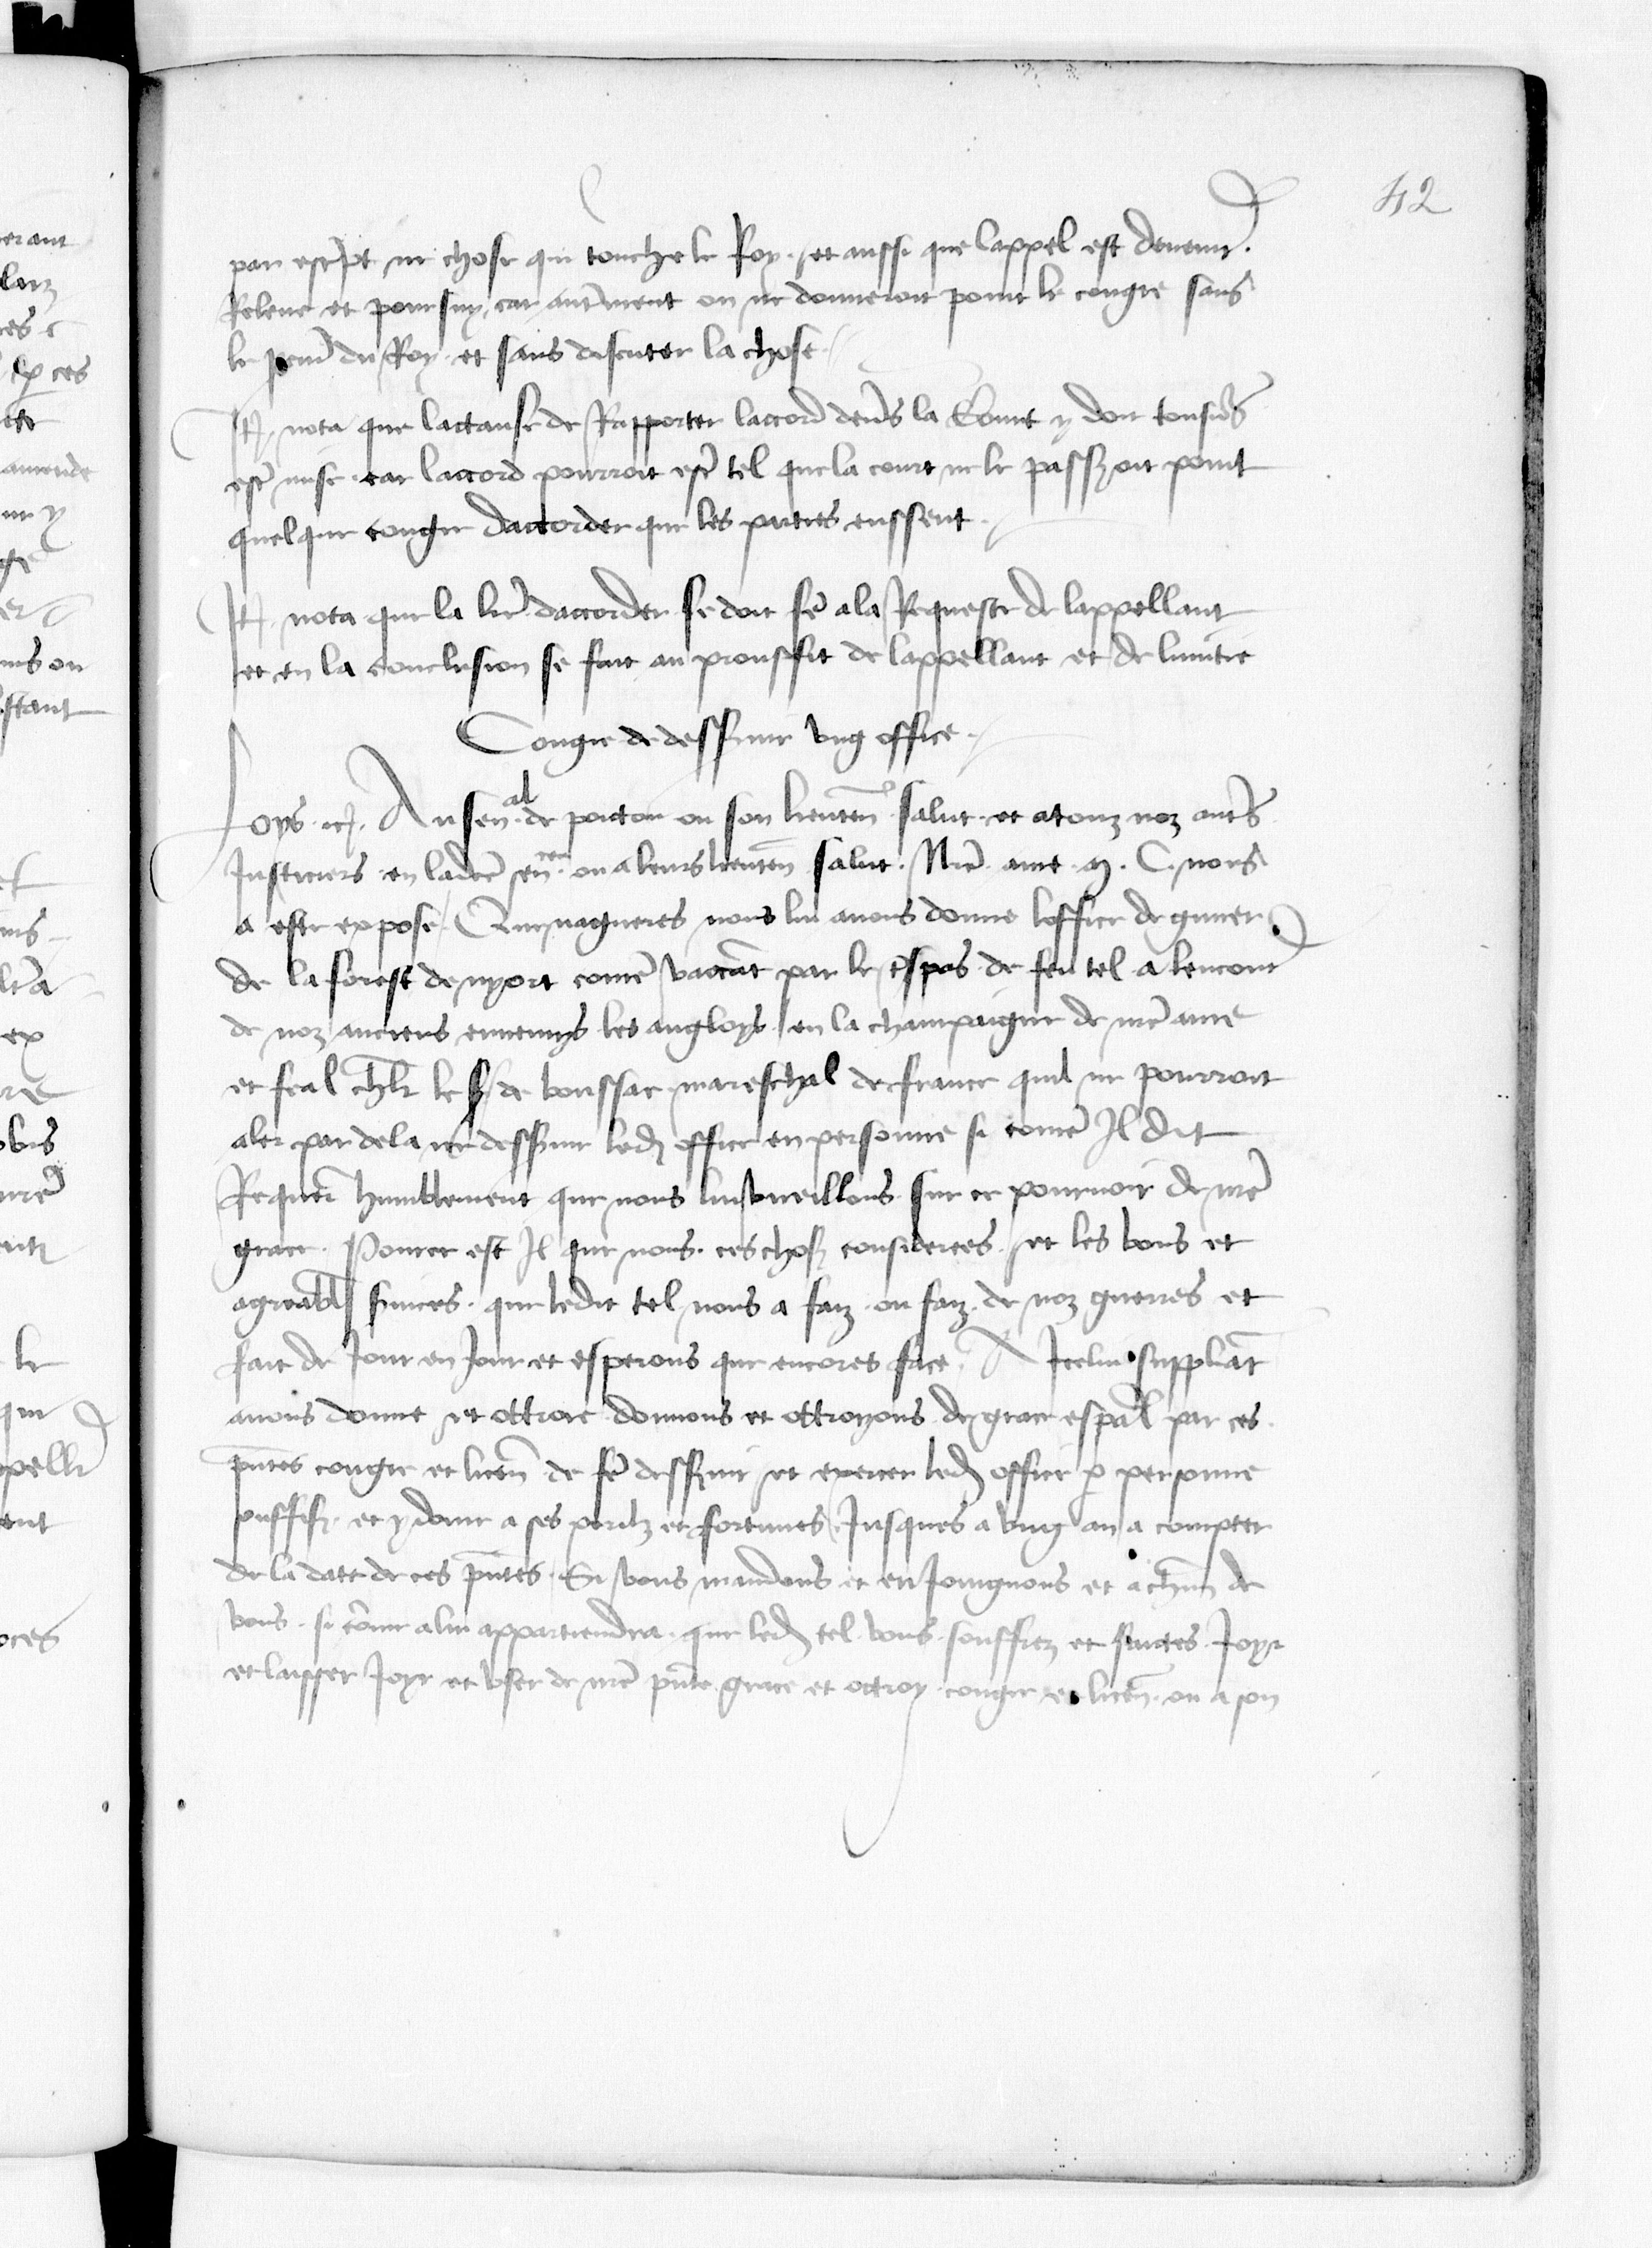 42
par escript ne chose qui touche le Roy. et aussi que lappel est devenu.
Releve et poursuy. car autrement on ne donneroit point le congie sans
le procureur du Roy. et sans discuter la chose.
Item nota que la clause de Rapporter laccord devers la Court y doit tousiours
estre mise. car laccord pourroit estre tel que la court ne le passeroit point
quelque congie daccorder que les parties eussent.
Item nota que la lettre daccorder se doit fere a la Requeste de lappellant
et en la conclusion se fait au prouffit de lappellant et de linthime
Congie de desservir ung office.
Loys etc. Au senal de poictou ou son lieutenant salut. et a touz noz autres
Justiciers en ladicte sen ou a leurs lieutenans salut. Nostre ame. M. C. nous
a este expose. Que nagueres nous lui avons donne loffice de
de la forest de nyort comme vaccant par le trespas de feu tel a lencontre
de noz anciens ennemys les angloys en la champaigne de nostre ame
et feal chevalier le sr de boussac mareschal de france quil ne pourroit
aler par dela ne desservir ledit office en personne si comme Il dit
Requerant humblement que nous lui vueillons sur ce pourveoir de nostre
grace. Pource est Il que nous. ces choses considerees. et les bons et
agreables services. que ledit tel nous a faiz ou faiz de noz guerres et
fait de Jour en Jour et esperons que encores face. A Icelui suppliant
avons donne et ottroie donnons et ottroyons de grace especial par ces
presentes congie et licence de fere desservir et exercer ledit office par personne
souffisant et ydoine a ses perilz et fortunes Jusques a ung an a compter
de la date de ces presentes. Si vous mandons et enJoingnons et a chascun de
vous. si comme a lui appartiendra. que ledit tel vous souffrez et faictes Joyr
et laisser Joyr et user de nostre presente grace et ottroy congie et licence ou a son